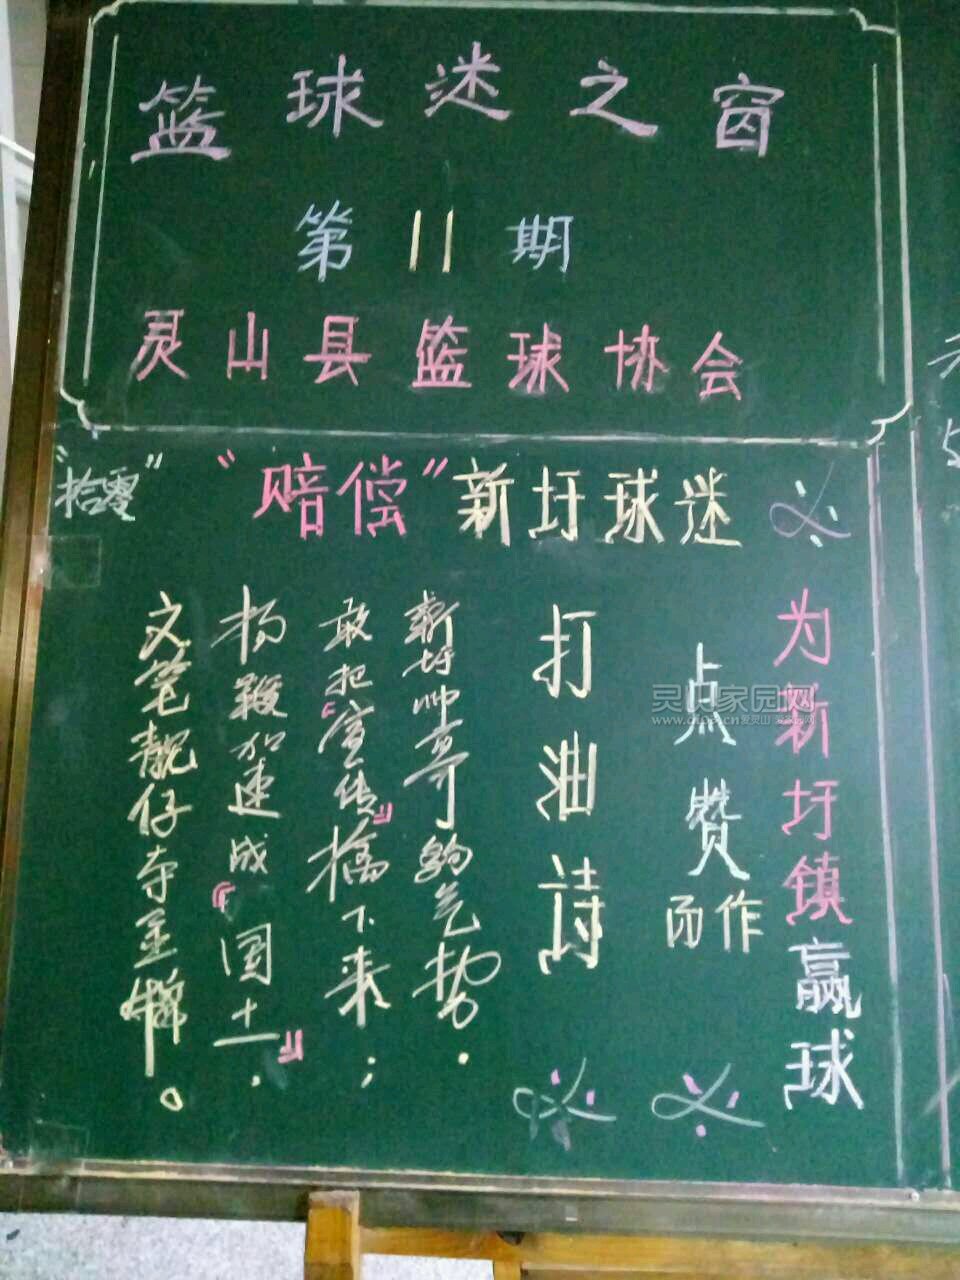 篮球迷之窗
第11期
灵山县篮球协会
"拾零"
"赔偿"新圩球迷
为新圩镇赢球
点赞而作
打油诗
新圩帅哥夠气势.
敢把『宣传』擒下来;
杨鞭加速成『圆士』.
文笔靓仔夺金牌。
灵山家园网
爱灵山 爱家园